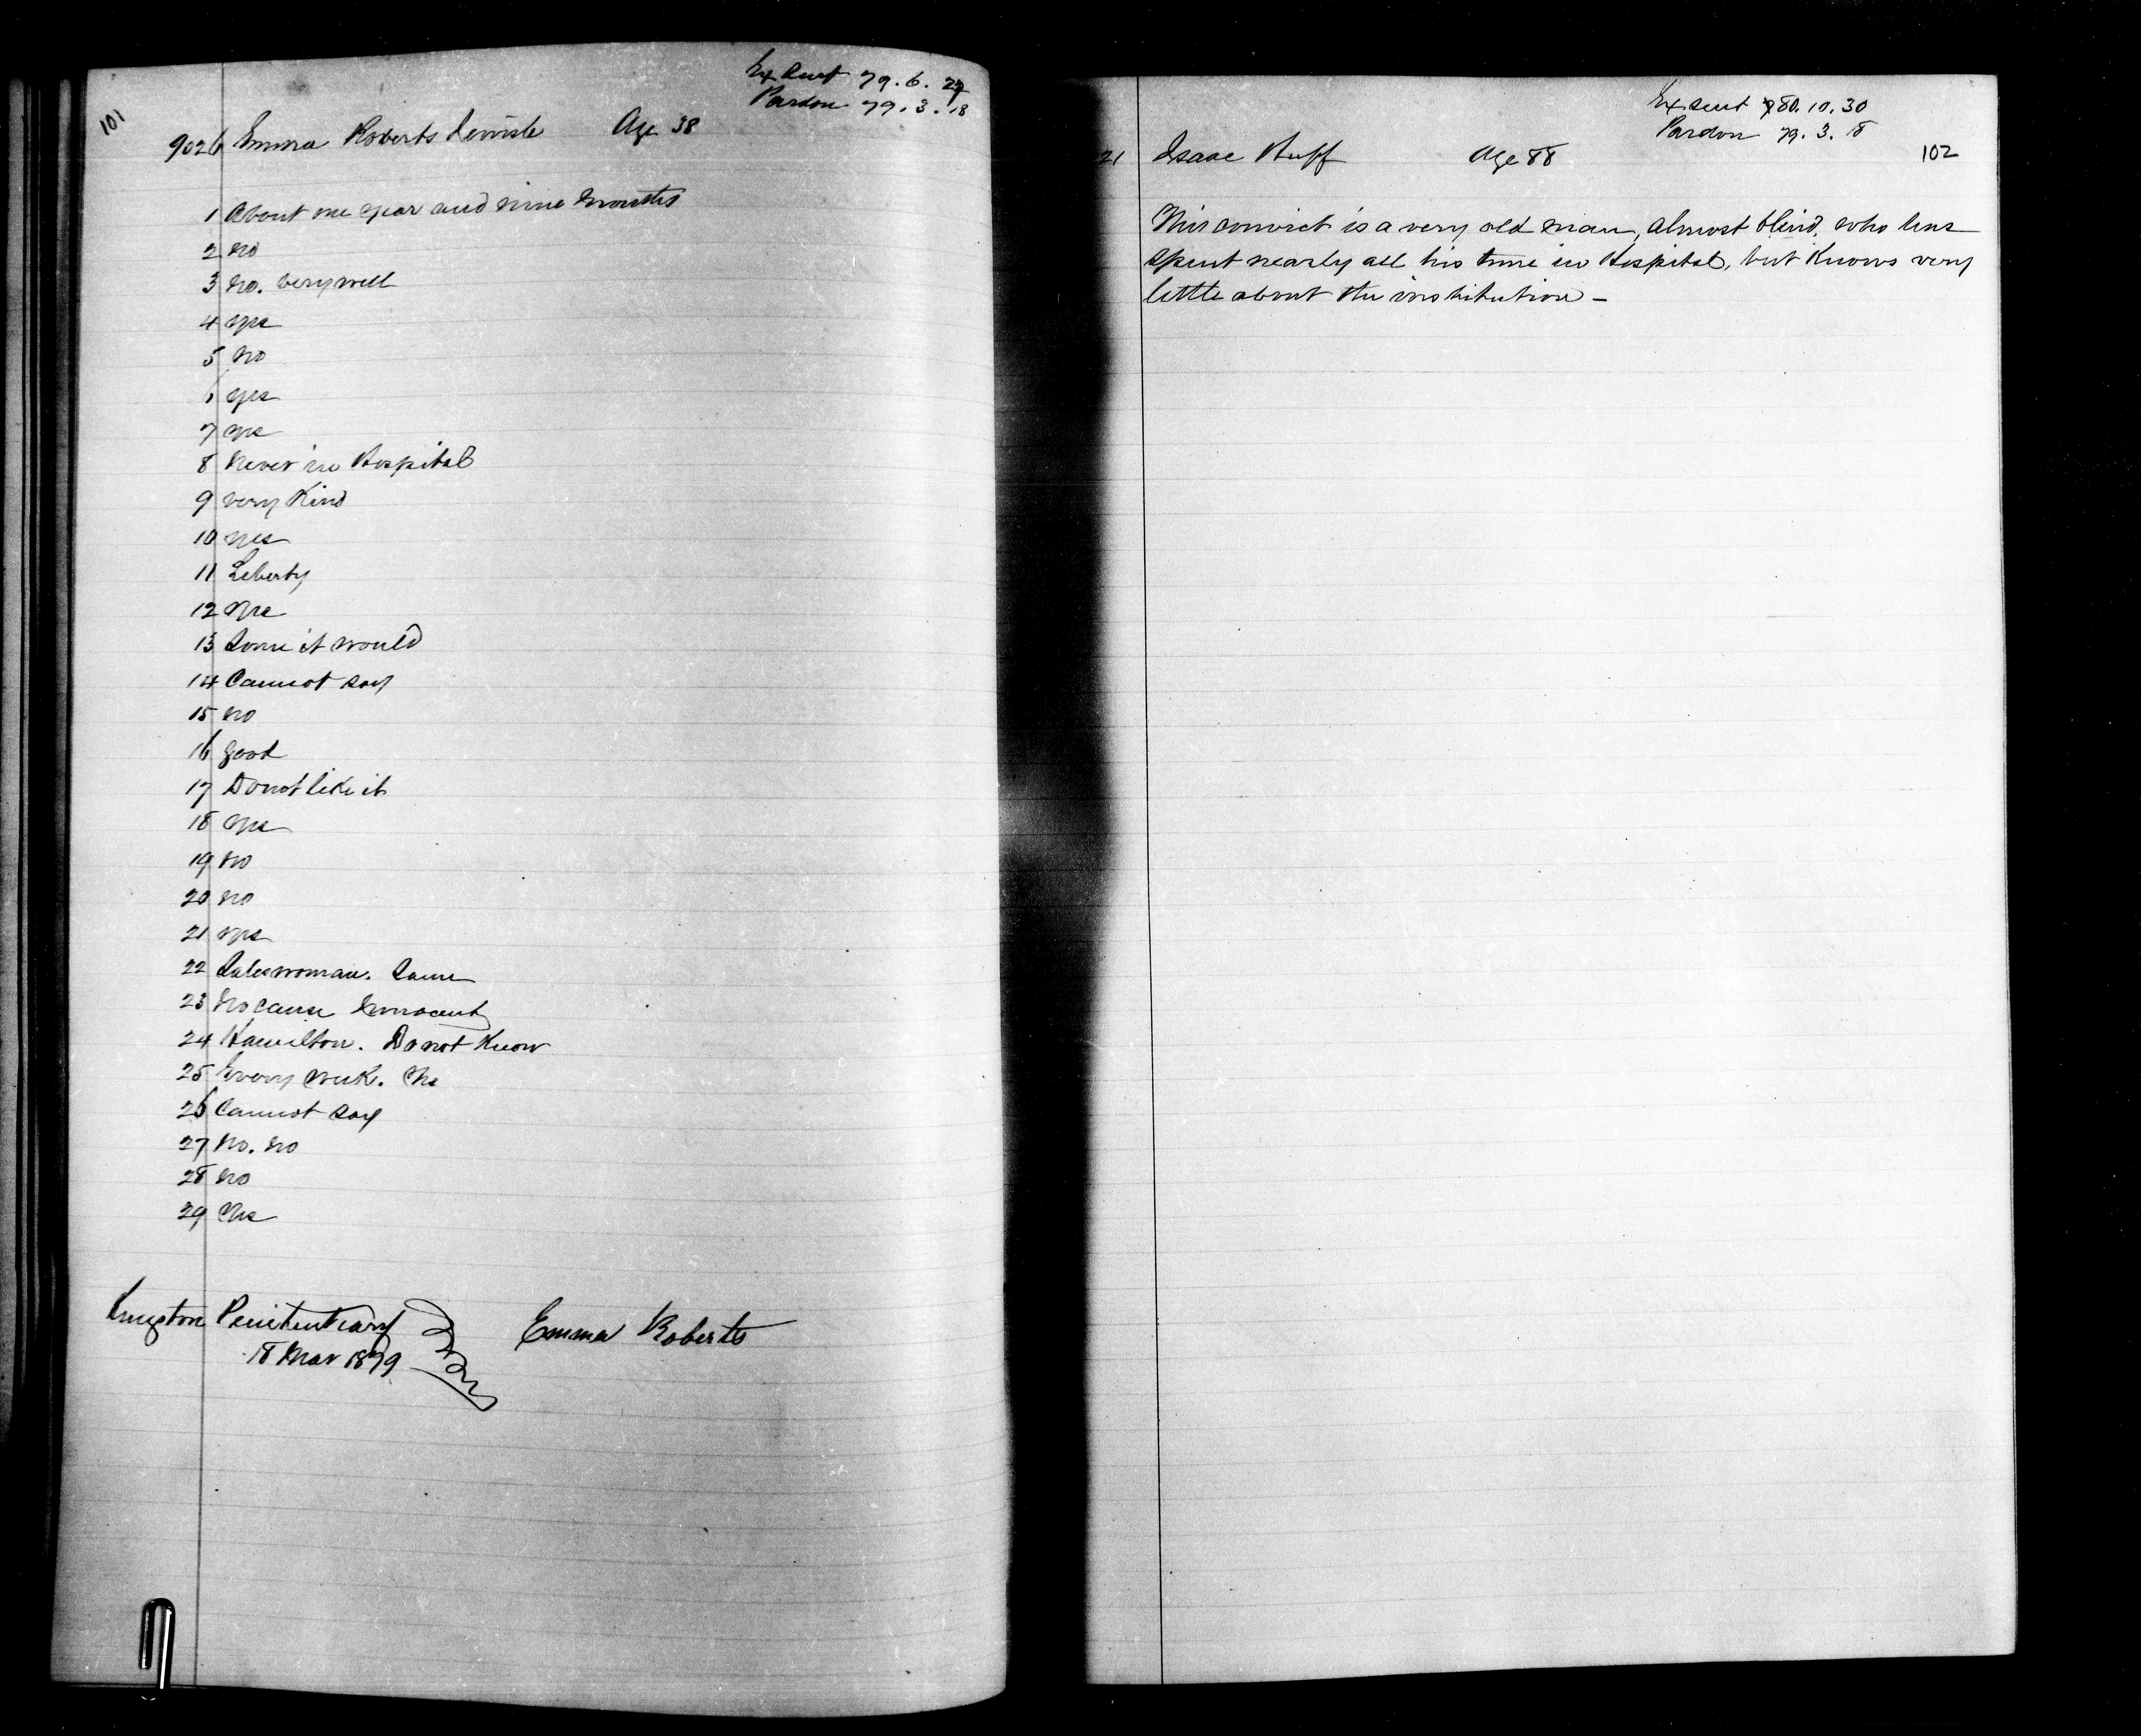 101
Ex Sent 79. 6. 27
Pardon 79. 3. 18
9026 Emma Roberts Age 38
1 About one year and nine months
2 no
3 no. very well
4 yes
5 no
6 yes
7 yes
8 Never in Hospital
9 very Kind
10 yes
11 Liberty
12 yes
13 Some it would
14 Cannot say
15 no
16 good
17 Do not like it
18 yes
19 no
20 no
21 yes
22 Saleswoman. Same
23 No cause Innocent
24 Hamilton. Do not Know
25 Every week. Yes
26 Cannot say
27 No. no
28 no
29 Yes
Kingston Penitentiary
18 Mar 1879
Emma Roberts
Ex sent 80. 10. 30
Pardon 79. 3. 18
102
21 Isaac Huff Age 88
This convict is a very old man, almost blind, who has
spent nearly all his time in Hospital, but Knows very
little about the institution –